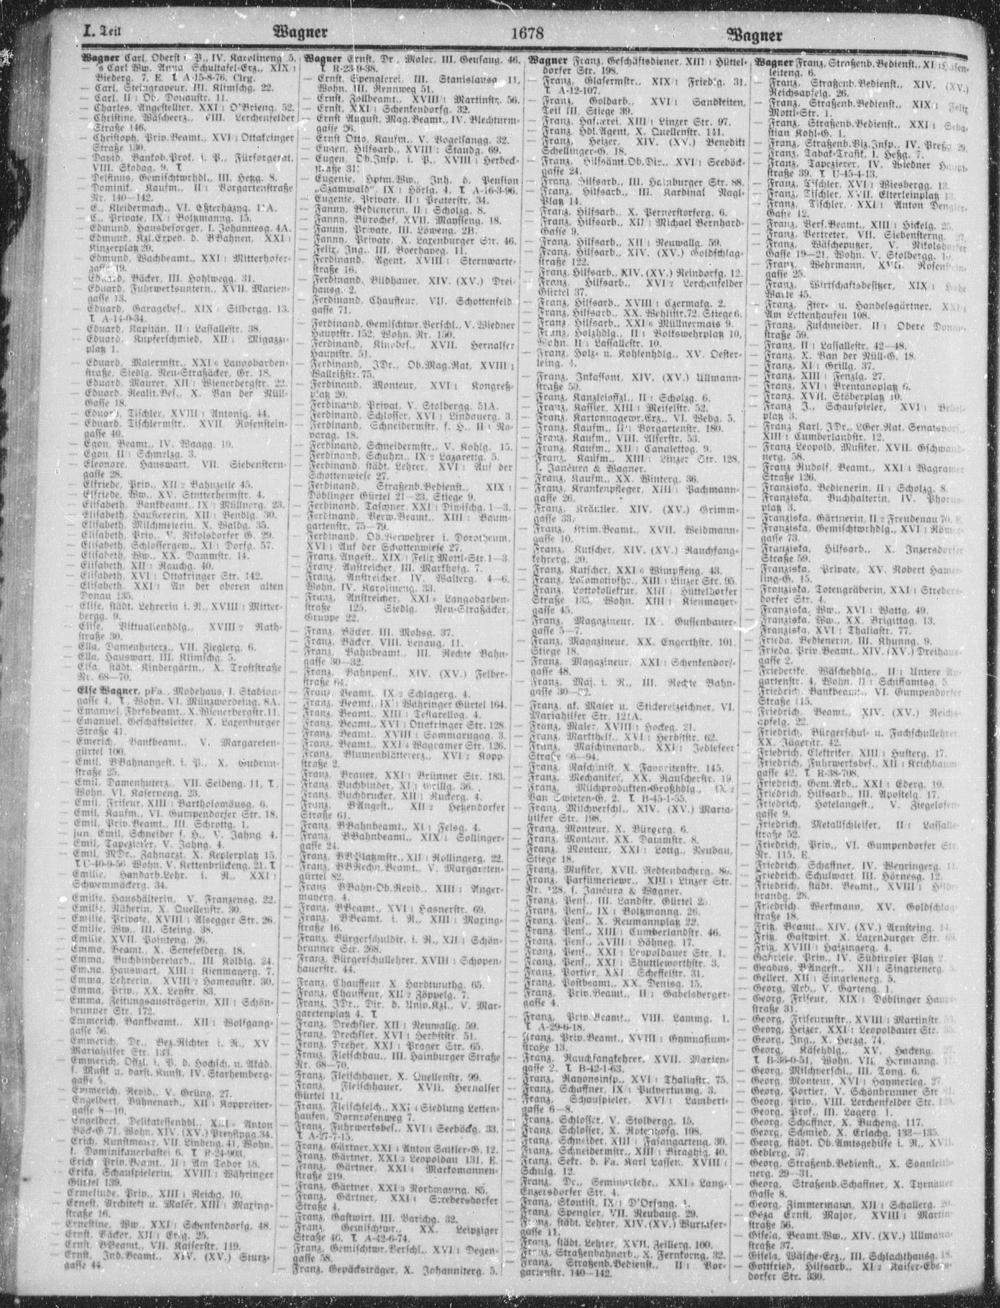 I. Teil Wagner 1678 Wagner
Wagner Carl, Oberst i. P., IV. Karolineng. 5.
— 's Carl Ww. Anna Schultafel-Erz., XIX :
Bieberg. 7. E. T A-15-8-76. Clrg.
— Carl, Steingraveur, III. Klimschg. 22.
— Carl, II : Ob. Donaustr. 11.
— Charles, Angestellter, XXI : O'Brieng. 52.
— Christine, Wäscheerz., VIII. Lerchenfelder
Straße 146.
— Christoph, Priv.Beamt., XVI : Ottakringer
Straße 130.
— David, Bankob.Prok. i. P., Fürsorgerat,
VIII. Stobag. 9. T
— Dominik, Kaufm., II : Vorgartenstraße
Nr. 140—142.
— E., Kleidermach., VI. Eßterházyg.
— E., Private, IX : Boltzmanng. 15.
— Edmund, Hausbesorger, I. Johannesg. 4A.
— Edmund, Kzl.Exped. d. BBahnen, XXI :
Kinzerplatz 29.
— Edmund, Wachbeamt., XXI : Mitterhofer-
gasse 19.
— Eduard, Bäcker, III. Hohlwegg. 31.
— Eduard, Fuhrwerksuntern., XVII. Marien-
gasse 13.
— Eduard, Garagebes., XIX : Silberg. 13.
T A-14-0-34.
— Eduard, Kapitän, II : Lassallestr. 38.
— Eduard, Kupferschmied, XII : Migazzi-
platz 1.
— Eduard, Malermstr., XXI : Langobarden-
straße, Siedlg. Neu-Straßäcker, Gr. 18.
— Eduard, Maurer, XII : Wienerbergstr. 22.
— Eduard, Realit.Bes., X. Van der Nüll-
Gasse 18.
— Eduard, Tischler, XVIII : Antonig. 44.
— Eduard, Tischlermstr., XVII. Rosenstein-
gasse 40.
— Egon, Beamt., IV. Waagg. 10.
— Egon, II : Schmelzg. 3.
— Eleonore, Hauswart, VII. Siebenstern-
gasse 28.
— Elfriede, Priv., XII : Bahnzeile 45.
— Elfriede, Ww., XV. Stutterheimstr. 4.
— Elisabeth, Bankbeamt., IX : Müllnerg. 23.
— Elisabeth, Hausiererin, XII : Bendlg. 30.
— Elisabeth, Milchmeierin, X. Waldg. 35.
— Elisabeth, Priv., V. Nikolsdorfer G. 29.
— Elisabeth, Schlossergew., XI : Dorfg. 57.
— Elisabeth, Ww., XX. Dammstr. 14.
— Elisabeth, XII : Rauchg. 40.
— Elisabeth, XVI : Ottakringer Str. 142.
— Elisabeth, XXI : An der oberen alten
Donau 135.
— Elise, städt. Lehrerin i. R., XVIII : Mitter-
bergg. 9.
— Elise, Viktualienhdlg., XVIII : Rath-
straße 30.
— Ella, Damenhuterz., VII. Zieglerg. 6.
— Ella, Hauswart, III. Klimschg. 5.
— Elsa, städt. Kindergärtn., X. Troststraße
Nr. 68—70.
Else Wagner, pFa., Modehaus, I. Stadion-
gasse 4. T Wohn. VI. Münzwardeing. 8A.
— Emanuel, Fbrksbeamt., X. Wienerbergstr. 11.
— Emanuel, Geschäftsleiter, X. Laxenburger
Straße 41.
— Emerich, Bankbeamt., V. Margareten-
gürtel 100.
— Emil, BBahnangest. i. P., X. Gudrun-
straße 25.
— Emil, Damenhuterz., VII. Seideng. 11. T
Wohn. VI. Kaserneng. 23.
— Emil, Friseur, XIII : Bartholomäusg. 6.
— Emil, Kaufm., VI. Gumpendorfer Str. 18.
— Emil, Priv.Beamt., III. Schrottg. 1.
— jun. Emil, Schneider f. H., V. Jahng. 4.
— Emil, Tapezierer, V. Jahng. 4.
— Emil, MDr., Zahnarzt, X. Keplerplatz 15.
T U-40-9-56. Wohn. V. Kettenbrückeng. 21. T
— Emilie, Handarb.Lehr. i. R., XXI :
Schwemmäckerg. 34.
— Emilie, Haushälterin, V. Franzensg. 22.
— Emilie, Näherin, X. Quellenstr. 30.
— Emilie, Private, XVIII : Alsegger Str. 26.
— Emilie, Ww., III. Steing. 38.
— Emilie, XVII. Pointeng. 26.
— Emma, Beamt., X. Senefelderg. 18.
— Emma, Buchbinderierarb., III. Kolblg. 24.
— Emma, Hauswart, XIII : Kienmayerg. 7.
— Emma, Lehrerin, XVIII : Hameaustr. 30.
— Emma, Priv., XX. Leystr. 83.
— Emma, Zeitungsausträgerin, XII : Schön-
brunner Str. 172.
— Emmerich, Bankbeamt., XII : Wolfgang-
gasse 56.
— Emmerich, Dr., Bez.Richter i. R., XV
Mariahilfer Str. 133.
— Emmerich, Offzl. i. P. d. Hochsch. u. Akad.
f. Musik u. darst. Kunst, IV. Starhemberg-
gasse 5.
— Emmerich, Revid., V. Grüng. 27.
— Engelbert, Bühnenarb., XII : Koppreiter-
gasse 8—10.
— Engelbert, Delikatessenhdl., XXI : Anton
Böck-G. 71. Wohn. XIV. (XV.) Prenspgg. 34.
— Erich, Kunstmaler, VII. Lindeng. 41. Wohn.
I. Dominikanerbastei 6. T R-24-903.
— Erich, Priv.Beamt., II : Am Tabor 18.
— Erika, Schauspielerin, XVIII : Währinger
Gürtel 139.
— Ermelinde, Priv., XIII : Reichg. 10.
— Ernest, Architekt u. Maler, XIII : Maxing-
straße 16.
— Ernestine, Ww., XXI : Schenkendorfg. 48.
— Ernst, Bäcker, XII : Erlg. 25.
— Ernst, BBeamt., VII. Kaiserstr. 119.
— Ernst, Ind.Beamt., XIV. (XV.) Sturz-
gasse 44.
Wagner Ernst, Dr., Maler, III. Geusaug. 46.
T R-23-9-38.
— Ernst, Spenglerei, III. Stanislausg. 11,
Wohn. III. Rennweg 51.
— Ernst, Zollbeamt., XVIII : Martinstr. 56.
— Ernst, XXI : Schenkendorfg. 32.
— Ernst August, Mag.Beamt., IV. Blechturm-
gasse 26.
— Ernst Otto, Kaufm., V. Vogelsangg. 32.
— Eugen, Hilfsarb., XVIII : Standhg. 69.
— Eugen, Ob.Insp. i. P., XVIII : Herbeck-
straße 31.
— Eugenie, Hptm.Ww., Inh. d. Pension
„Szamwald" IX : Hörlg. 4. T A-16-3-96.
— Eugenie, Private, II : Praterstr. 34.
— Fanny, Bedienerin, II : Scholzg. 8.
— Fanny, Bürochef, XVII. Mayßeng. 18.
— Fanny, Private, III. Löweng. 2B.
— Fanny, Private, X. Laxenburger Str. 46.
— Felix, Ing., III. Boerhaveg. 11.
— Ferdinand, Agent, XVIII : Sternwarte-
straße 16.
— Ferdinand, Bildhauer, XIV. (XV.) Drei-
hausg. 2.
— Ferdinand, Chauffeur, VII. Schottenfeld-
gasse 71.
— Ferdinand, Gemischtwr.Verschl., V. Wiedner
Hauptstr. 152, Wohn. Nr. 150.
— Ferdinand, XVII. Hernalser
Hauptstr. 51.
— Ferdinand, JDr., Ob.Mag.Rat, XVIII :
Wallrißstr. 75.
— Ferdinand, Monteur, XVI : Kongreß-
platz 20.
— Ferdinand, Privat, V. Stolbergg. 51A.
— Ferdinand, Schlosser, XVI : Lindauerg. 3.
— Ferdinand, Schneidermstr. f. H., II : No-
varag. 18.
— Ferdinand, Schneidermstr., V. Kohlg. 15.
— Ferdinand, Schuhm., IX : Lazarettg. 5.
— Ferdinand, städt. Lehrer, XVI : Auf der
Schottenwiese 27.
— Ferdinand, Straßenb.Bedienst., XIX :
Döblinger Gürtel 21—23, Stiege 9.
— Ferdinand, Taschner, XXI : Dinischg. 1—3.
— Ferdinand, Verw.Beamt., XIII : Baum-
gartenstr. 75—79.
— Ferdinand, Ob.Verwohrer i. Dorotheum,
XVI : Auf der Schottenwiese 27.
— Franz, Angest., XIX : Felix Mottl-Str. 1—3.
— Franz, Anstreicher, III. Markhofg. 7.
— Franz, Anstreicher, IV. Walterg. 4—6,
Wohn. IV. Karolineng. 33.
— Franz, Anstreicher, XXI : Langobarden-
straße 125, Siedlg. Neu-Straßäcker,
Gruppe 22.
— Franz, Bäcker, III. Mohsg. 37.
— Franz, Bäcker, VIII. Lenaug. 11.
— Franz, Bahnbeamt., III. Rechte Bahn-
gasse 30—32.
— Franz, Bahnpens., XIV. (XV.) Felber-
straße 64.
— Franz, Beamt., IX : Schlagerg. 4.
— Franz, Beamt., IX : Währinger Gürtel 164.
— Franz, Beamt., XIII : Testarellog. 4.
— Franz, Beamt., XVI : Ottakringer Str. 128.
— Franz, Beamt., XVIII : Sommarugag. 3.
— Franz, Beamt., XXI : Wagramer Str. 126.
— Franz, Blumenblättererz., XVI : Kopp-
straße 2.
— Franz, Brauer, XXI : Brünner Str. 183.
— Franz, Buchbinder, XI : Grillg. 36.
— Franz, Buchdrucker, XII : Ruckerg. 4.
— Franz, BAngest., XII : Hetzendorfer
Straße 61.
— Franz, BBahnbeamt., XI : Felsg. 4.
— Franz, BBahnbeamt., XIX : Sollinger-
gasse 24.
— Franz, BBPlatzmstr., XII : Rollingerg. 22.
— Franz, BRechn.Beamt., V. Margareten-
gürtel 82.
— Franz, BBahn-Ob.Revid., XIII : Anger-
mayerg. 4.
— Franz, BBeamt., XVI : Hasnerstr. 69.
— Franz, BBeamt. i. R., XIII : Maxing-
straße 16.
— Franz, Bürgerschuldir. i. R., XII : Schön-
brunner Str. 268.
— Franz, Bürgerschullehrer, XVIII : Schopen-
hauerstr. 44.
— Franz, Chauffeur, X. Hardtmuthg. 65.
— Franz, Chauffeur, XII : Zöppelg. 7.
— Franz, JDr., Dir. d. Univ.Kzl., V. Mar-
garetenplatz 4. T
— Franz, Drechsler, XII : Neuwallg. 59.
— Franz, Drechsler, XVI : Herbststr. 51.
— Franz, Dreher, XXI : Prager Str. 65.
— Franz, Fleischhau., III. Hainburger Straße
Nr. 68—70.
— Franz, Fleischhauer, X. Quellenstr. 99.
— Franz, Fleischhauer, XVII. Hernalser
Gürtel 11.
— Franz, Fleischselch., XXI : Siedlung Letten-
haufen, Dornrosenweg 7.
— Franz, Fuhrwerksbes., XVI : Seeböckg. 33.
T A-27-7-15.
— Franz, Gärtner, XXI : Anton Sattler-G. 12.
— Franz, Gärtner, XXI : Leopoldau 131, E.
— Franz, Gärtner, XXI : Markomannen-
straße 219.
— Franz, Gärtner, XXI : Nordmanng. 85.
— Franz, Gärtner, XXI : Strebersdorfer
Straße 4.
— Franz, Gastwirt, III. Barichg. 32.
— Franz, Gemischtwr., XX. Leipziger
Straße 46. T A-42-6-74.
— Franz, Gemischtwr.Verschl., XVI : Degen-
gasse 58.
— Franz, Gepäcksträger, X. Johanniterg. 5.
Wagner Franz, Geschäftsdiener, XIII : Hüttel-
dorfer Str. 198.
— Franz, Glasfermstr., XIX : Friedlg. 31.
T A-12-107.
— Franz, Goldarb., XVI : Sandleiten,
Teil III, Stiege 39.
— Franz, Haf.erz., XIII : Linzer Str. 97.
— Franz, Hdl.Agent, X. Quellenstr. 141.
— Franz, Heizer, XIV. (XV.) Benedikt
Schellinger-G. 18.
— Franz, Hilfsämt.Ob.Dir., XVI : Seeböck-
gasse 24.
— Franz, Hilfsarb., III. Hainburger Str. 88.
— Franz, Hilfsarb., III. Kardinal Nagl-
Platz 14.
— Franz, Hilfsarb., X. Pernerstorferg. 6.
— Franz, Hilfsarb., XII : Michael Bernhard-
Gasse 9.
— Franz, Hilfsarb., XII : Neuwallg. 59.
— Franz, Hilfsarb., XIV. (XV.) Goldschlag-
straße 122.
— Franz, Hilfsarb., XIV. (XV.) Reindorfg. 12.
— Franz, Hilfsarb., XVI : Lerchenfelder
Gürtel 37.
— Franz, Hilfsarb., XVIII : Czermakg. 2.
— Franz, Hilfsarb., XX. Wehlistr. 72, Stiege 6.
— Franz, Hilfsarb., XXI : Müllnermaig. 9.
— Franz, Holzhdlg., II : Volkswehrplatz 10,
Wohn. II : Lassallestr. 10.
— Franz, Holz- u. Kohlenhdlg., XV. Oester-
leing. 4.
— Franz, Inkassont, XIV. (XV.) Ullmann-
straße 50.
— Franz, Kanzleioffzl., II : Scholzg. 6.
— Franz, Kassier, XIII : Meiselstr. 52.
— Franz, Kartonnagewr.Erz., VI. Webg. 5.
— Franz, Kaufm., II : Vorgartenstr. 180.
— Franz, Kaufm., VIII. Alserstr. 53.
— Franz, Kaufm., XII : Canalettog. 9.
— Franz, Kaufm., XIII : Linzer Str. 128,
f. Jančura & Wagner.
— Franz, Kaufm., XX. Winterg. 36.
— Franz, Krankenpfleger, XIII : Pachmann-
gasse 26.
— Franz, Kräutler, XIV. (XV.) Grimm-
gasse 33.
— Franz, Krim.Beamt., XVII. Weidmann-
gasse 10.
— Franz, Kutscher, XIV. (XV.) Rauchfang-
kehrerg. 20.
— Franz, Kutscher, XXI : Wimpffeng. 43.
— Franz, Lokomotivfhr., XIII : Linzer Str. 95.
— Franz, Lottokollektur, XIII : Hütteldorfer
Straße 135. Wohn. XIII : Kienmayer-
gasse 45.
— Franz, Magazineur, IX : Gussenbauer-
gasse 5—7.
— Franz, Magazineur, XX. Engerthstr. 101,
Stiege 18.
— Franz, Magazineur, XXI : Schenkendorf-
gasse 48.
— Franz, Maj. i. R., III. Rechte Bahn-
gasse 30—32.
— Franz, ak. Maler u. Stickereizeichner, VI.
Mariahilfer Str. 121A.
— Franz, Maler, XVIII : Hockeg. 21.
— Franz, Markthelf., XVI : Herbststr. 62.
— Franz, Maschinenarb., XXI : Jedleseer
Straße 66—94.
— Franz, Maschinist, X. Favoritenstr. 145.
— Franz, Mechaniker, XX. Rauscherstr. 19.
— Franz, Milchprodukten-Großhdlg., IX :
Van Swieten-G. 2. T B-45-1-55.
— Franz, Milchverschl., XIV. (XV.) Maria-
hilfer Str. 198.
— Franz, Monteur, X. Bürgerg. 6.
— Franz, Monteur, XX. Dammstr. 8.
— Franz, Monteur, XXI : Lottg., Neubau,
Stiege 18.
— Franz, Musiker, XVII. Redtenbacherg. 86.
— Franz, Parfümeriewr., XIII : Linzer Str.
Nr. 128, f. Jančura & Wagner.
— Franz, Pens., III. Landstr. Gürtel
— Franz, Pens., IX : Boltzmanng. 26.
— Franz, Pens., X. Neumannplatz 22.
— Franz, Pens., XIII : Cumberlandstr. 46.
— Franz, Pens., XVIII : Höhneg. 17.
— Franz, Pens., XXI : Leopoldauer Str. 1.
— Franz, Pens., XXI : Shuttleworthstr. 3.
— Franz, Portier, XXI : Scheffelstr. 31.
— Franz, Postbeamt., XX. Denisg. 15.
— Franz, Priv.Beamt., II : Gabelsberger-
gasse 4.
— Franz, Priv.Beamt., VIII. Lammg. 1.
T A-29-6-18.
— Franz, Priv.Beamt., XVIII : Gymnasium-
straße 13.
— Franz, Rauchfangkehrer, XVII. Marien-
gasse 2. T B-42-1-63.
— Franz, Rayonsinsp., XVI : Thaliastr. 75.
— Franz, Schaffner, IX : Pulverturmg. 3.
— Franz, Schauspieler, XVI : Lambert-
gasse 6—8.
— Franz, Schlosser, V. Stolbergg. 15.
— Franz, Schlosser, X. Rotenhofg. 108.
— Franz, Schneider, XIII : Fasangarteng. 30.
— Franz, Schneidermstr., XIII : Biraghig. 40.
— Franz, Sekr. d. Fa. Karl Lassen, XVIII :
Schulg. 12.
— Franz, Dr., Seminarlehr., XXI : Lang-
Enzersdorfer Str. 4.
— Franz, Skontist, IX : D'Orsayg. 1.
— Franz, Spengler, VII. Neubaug. 29.
— Franz, städt. Lehrer, XIV. (XV.) Wurmser-
gasse 11.
— Franz, städt. Lehrer, XVII. Zeillerg. 100.
— Franz, Straßenbahnarb., X. Fernkorng. 32.
— Franz, Straßenb.Bedienst., II : Vor-
gartenstr. 140—142.
Wagner Franz, Straßenb.Bedienst., XI :
leiteng. 6.
— Franz, Straßenb.Bedienst., XIV. (XV.)
Reichsapfelg. 26.
— Franz, Straßenb.Bedienst., XIX : Felix
Mottl-Str. 1.
— Franz, Straßenb.Bedienst., XXI : Seba-
stian Kohl-G. 1.
— Franz, Straßenb.Viz.Insp., IV. Preßg. 29.
— Franz, Tabak-Trafik, I. Heßg. 7.
— Franz, Tapezierer, IV. Wiedner Haupt-
straße 39. T U-45-4-13.
— Franz, Tischler, XVI : Wiesbergg. 13.
— Franz, Tischler, XVII. Elterleinplatz 13.
— Franz, Tischler, XXI : Anton Dengler-
Gasse 12.
— Franz, Vers.Beamt., XIII : Hickelg. 25.
— Franz, Vertreter, VII. Siebensterng. 27.
— Franz, Wäscheputzer, V. Nikolsdorfer
Gasse 19—21, Wohn. V. Stolbergg. 15.
— Franz, Wehrmann, XVII. Rosenstein-
gasse 25.
— Franz, Wirtschaftsbesitzer, XIX : Hohe
Warte 45.
— Franz, Zier- u. Handelsgärtner, XXI :
Am Lettenhaufen 108.
— Franz, Zuschneider, II : Obere Donau-
straße 59.
— Franz, II : Lassallestr. 42—48.
— Franz, X. Van der Nüll-G. 18.
— Franz, XI : Grillg. 37.
— Franz, XIII : Fenzlg. 27.
— Franz, XVI : Brentanoplatz 6.
— Franz, XVII. Stöberplatz 10.
— Franz J., Schauspieler, XVI :
platz 3.
— Franz Karl, JDr., LGer.Rat, Senatsvors.,
XIII : Cumberlandstr. 12.
— Franz Leopold, Musiker, XVII. Gschwand-
nerg. 58.
— Franz Rudolf, Beamt., XXI : Wagramer
Straße 126.
— Franziska, Bedienerin, II : Scholzg. 8.
— Franziska, Buchhalterin, IV. Phorus-
platz 3.
— Franziska, Gärtnerin, II : Freudenau 70, E.
— Franziska, Gemischtwrhdlg., XVI :
gasse 73.
— Franziska, Hilfsarb., X. Inzersdorfer
Straße 59.
— Franziska, Private, XV. Robert Hamer-
ling-G. 15.
— Franziska, Totengräberin, XXI : Strebers-
dorfer Str. 4.
— Franziska, Ww., XVI : Wattg. 49.
— Franziska, Ww., XX. Brigittag. 13.
— Franziska, XVI : Thaliastr. 77.
— Frieda, Bedienerin, III. Khunng. 9.
— Frieda, Priv.Beamt., XIV. (XV.) Dreihaus-
gasse 2.
— Friederike, Wäschehdlg., II : Untere Au-
gartenstr. 4, Wohn. II : Schiffamtsg. 5.
— Friedrich, Bankbeamt., VI. Gumpendorfer
Straße 115.
— Friedrich, Beamt., XIV. (XV.) Reichs-
apfelg. 22.
— Friedrich, Bürgerschul- u. Fachschullehrer,
XX. Jägerstr. 42.
— Friedrich, Elektriker, XIII : Husterg. 17.
— Friedrich, Fuhrwerksbes., XII : Krichbaum-
gasse 42. T R-38-708.
— Friedrich, Gem.Arb., XXI : Ederg. 19.
— Friedrich, Hilfsarb., III. Apostelg. 17.
— Friedrich, Hotelangest., V. Ziegelofen-
gasse 9.
— Friedrich, Metallschleifer, II : Lassalle-
straße 52.
— Friedrich, Priv., VI. Gumpendorfer Str.
Nr. 115, E.
— Friedrich, Schaffner, IV. Weyringerg. 11.
— Friedrich, Schulwart, III. Hörnesg. 12.
— Friedrich, städt. Beamt., XVIII : Hilde-
brandg. 28.
— Friedrich, Werkmann, XV. Goldschlag-
straße 18.
— Fritz, Beamt., XIV. (XV.) Arnsteing. 14.
— Fritz, Gastwirt, X. Laxenburger Str.
— Fritz, XVIII : Haizingerg. 4.
— Gabriele, Priv., IV. Südtiroler Platz 2.
— Geadus, BAngest., XII : Singrienerg. 5.
— Gellert, XII : Singrienerg. 5.
— Georg, Arb., V. Garteng. 1.
— Georg, Friseur, XIX : Döblinger Haupt-
straße 31.
— Georg, Friseurmstr., XVIII : Martinstr.
— Georg, Heizer, XXI : Leopoldauer Str.
— Georg, Ing., X. Herzg. 74.
— Georg, Käsehdlg., XV. Hackeng. 27.
T B-36-0-51, Wohn. VII. Hermanng.
— Georg, Milchverschl., III. Tong. 6.
— Georg, Monteur, XVI : Haymerleg. 27.
— Georg, Portier, V. Schönbrunner Str.
— Georg, Priv., VIII. Lerchenfelder Str.
— Georg, Prof., III. Lagerg. 1.
— Georg, Schaffner, X. Bucheng. 117.
— Georg, Schmied, X. Erlachg. 133—135.
— Georg, städt. Ob.Amtsgehilfe i. R., XVII.
Geblerg. 37.
— Georg, Straßenb.Bedienst., X. Sonnleith-
nerg. 29—31.
— Georg, Straßenb.Schaffner, X. Tyrnauer
Gasse 8.
— Georg, Zimmermann, XII : Schallerg.
— Geza Ernst, Major, XVIII : Martin-
straße 56.
— Gisela, Beamt.Ww., XIV. (XV.) Ullmann-
straße 37.
— Gisela, Wäsche-Erz., III. Schlachthausg. 18.
— Gottfried, Hilfsarb., XI : Kaiser-Ebers-
dorfer Str. 330.